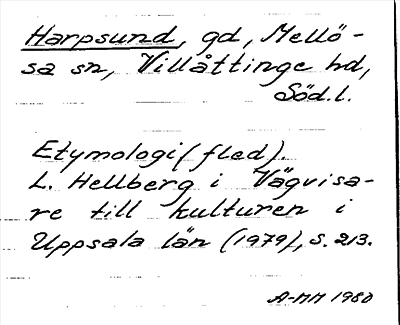 Harpsund, gd, Mellö-
sa sn, Villåttinge hd,
Söd.l.
Etymologi (fled).
L. Hellberg i Vägvisa-
re till kulturen i
Uppsala län (1979), s. 213.
A-MM 1980